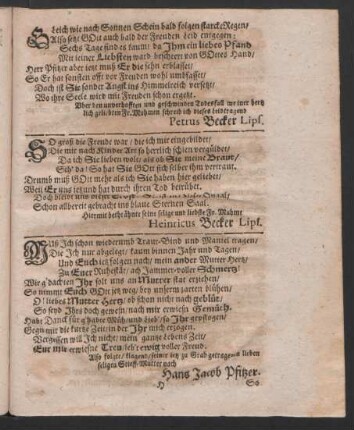 Gleich wie nach Sonnen Schein bald folgen starcke Regen/
Also setzt GOtt auch bald der Freuden Leid entgegen:
Sechs Tage sind es kaum/ da Ihm ein liebes Pfand
Mit seiner Liebsten ward bescheert von GOttes Hand/
Herr Pfitzer aber jetzt muß Er die sehn erblasset/
So Er hat sonsten offt vor Freuden wohl umbfasset/
Doch ist Sie sonder Angst ins Himmelreich versetzt/
Wo ihre Seele wird mit Freuden schon ergetzt.
Uber den unverhofften und geschwinden Todesfall seiner hertz
lich geliebten Fr. Muhmen schrieb ich dieses beydtragend
Petrus Becker Lips.
SO groß die Freude war/ die ich mir eingebildet/
Die mir nach Kinder Art so herrlich schien vergüldet/
Da ich Sie lieben wolt/ als ob Sie meine Braut/
Sih' da! So hat Sie GOtt sich selber ihm vertraut.
Drumb muß GOtt mehr als ich Sie haben hier geliebet/
Weil Er uns jetzund hat durch ihren Tod betrübet.
Schon allbereit gebracht ins blaue Sternen Saal.
Hiermit bethrähnte seine selige und liebste Fr. Muhme
Heinricus Becker Lips.
MUß Ich schon wiederumb Traur-Bind und Mantel tragen/
Die Ich nur abgelegt/ kaum binnen Jahr und Tagen/
Und Euch jetz folgen nach/ mein ander Mutter Hertz/
Zu Eurer Ruhestät/ ach Jammer-voller Schmertz/
Wir g'dachten Ihr solt uns an Mutter stat erziehen/
So nimmt Euch GOtt jetz weg/ bey unserm zarten blühen/
O! liebes Mutter Hertz/ ob schon nicht nach geblüt/
So seyd Ihrs doch gewest/ nach mir erwiesn Gemüth.
Habt Danck für g'habte Müh/ und Lieb/ so Ihr gepflogen/
Gegn mir die kurtze Zeit in der Ihr mich erzogen.
Vergessen will Ich nicht/ mein gantze Lebens Zeit/
Eur mir erwiesne Treu/ lebt ewig voller Freud.
Also folgte/ klagent/ seiner jetz zu Grab getragenen lieben
seligen Stieff-Mutter nach
Hans Jacob Pfitzer.
So